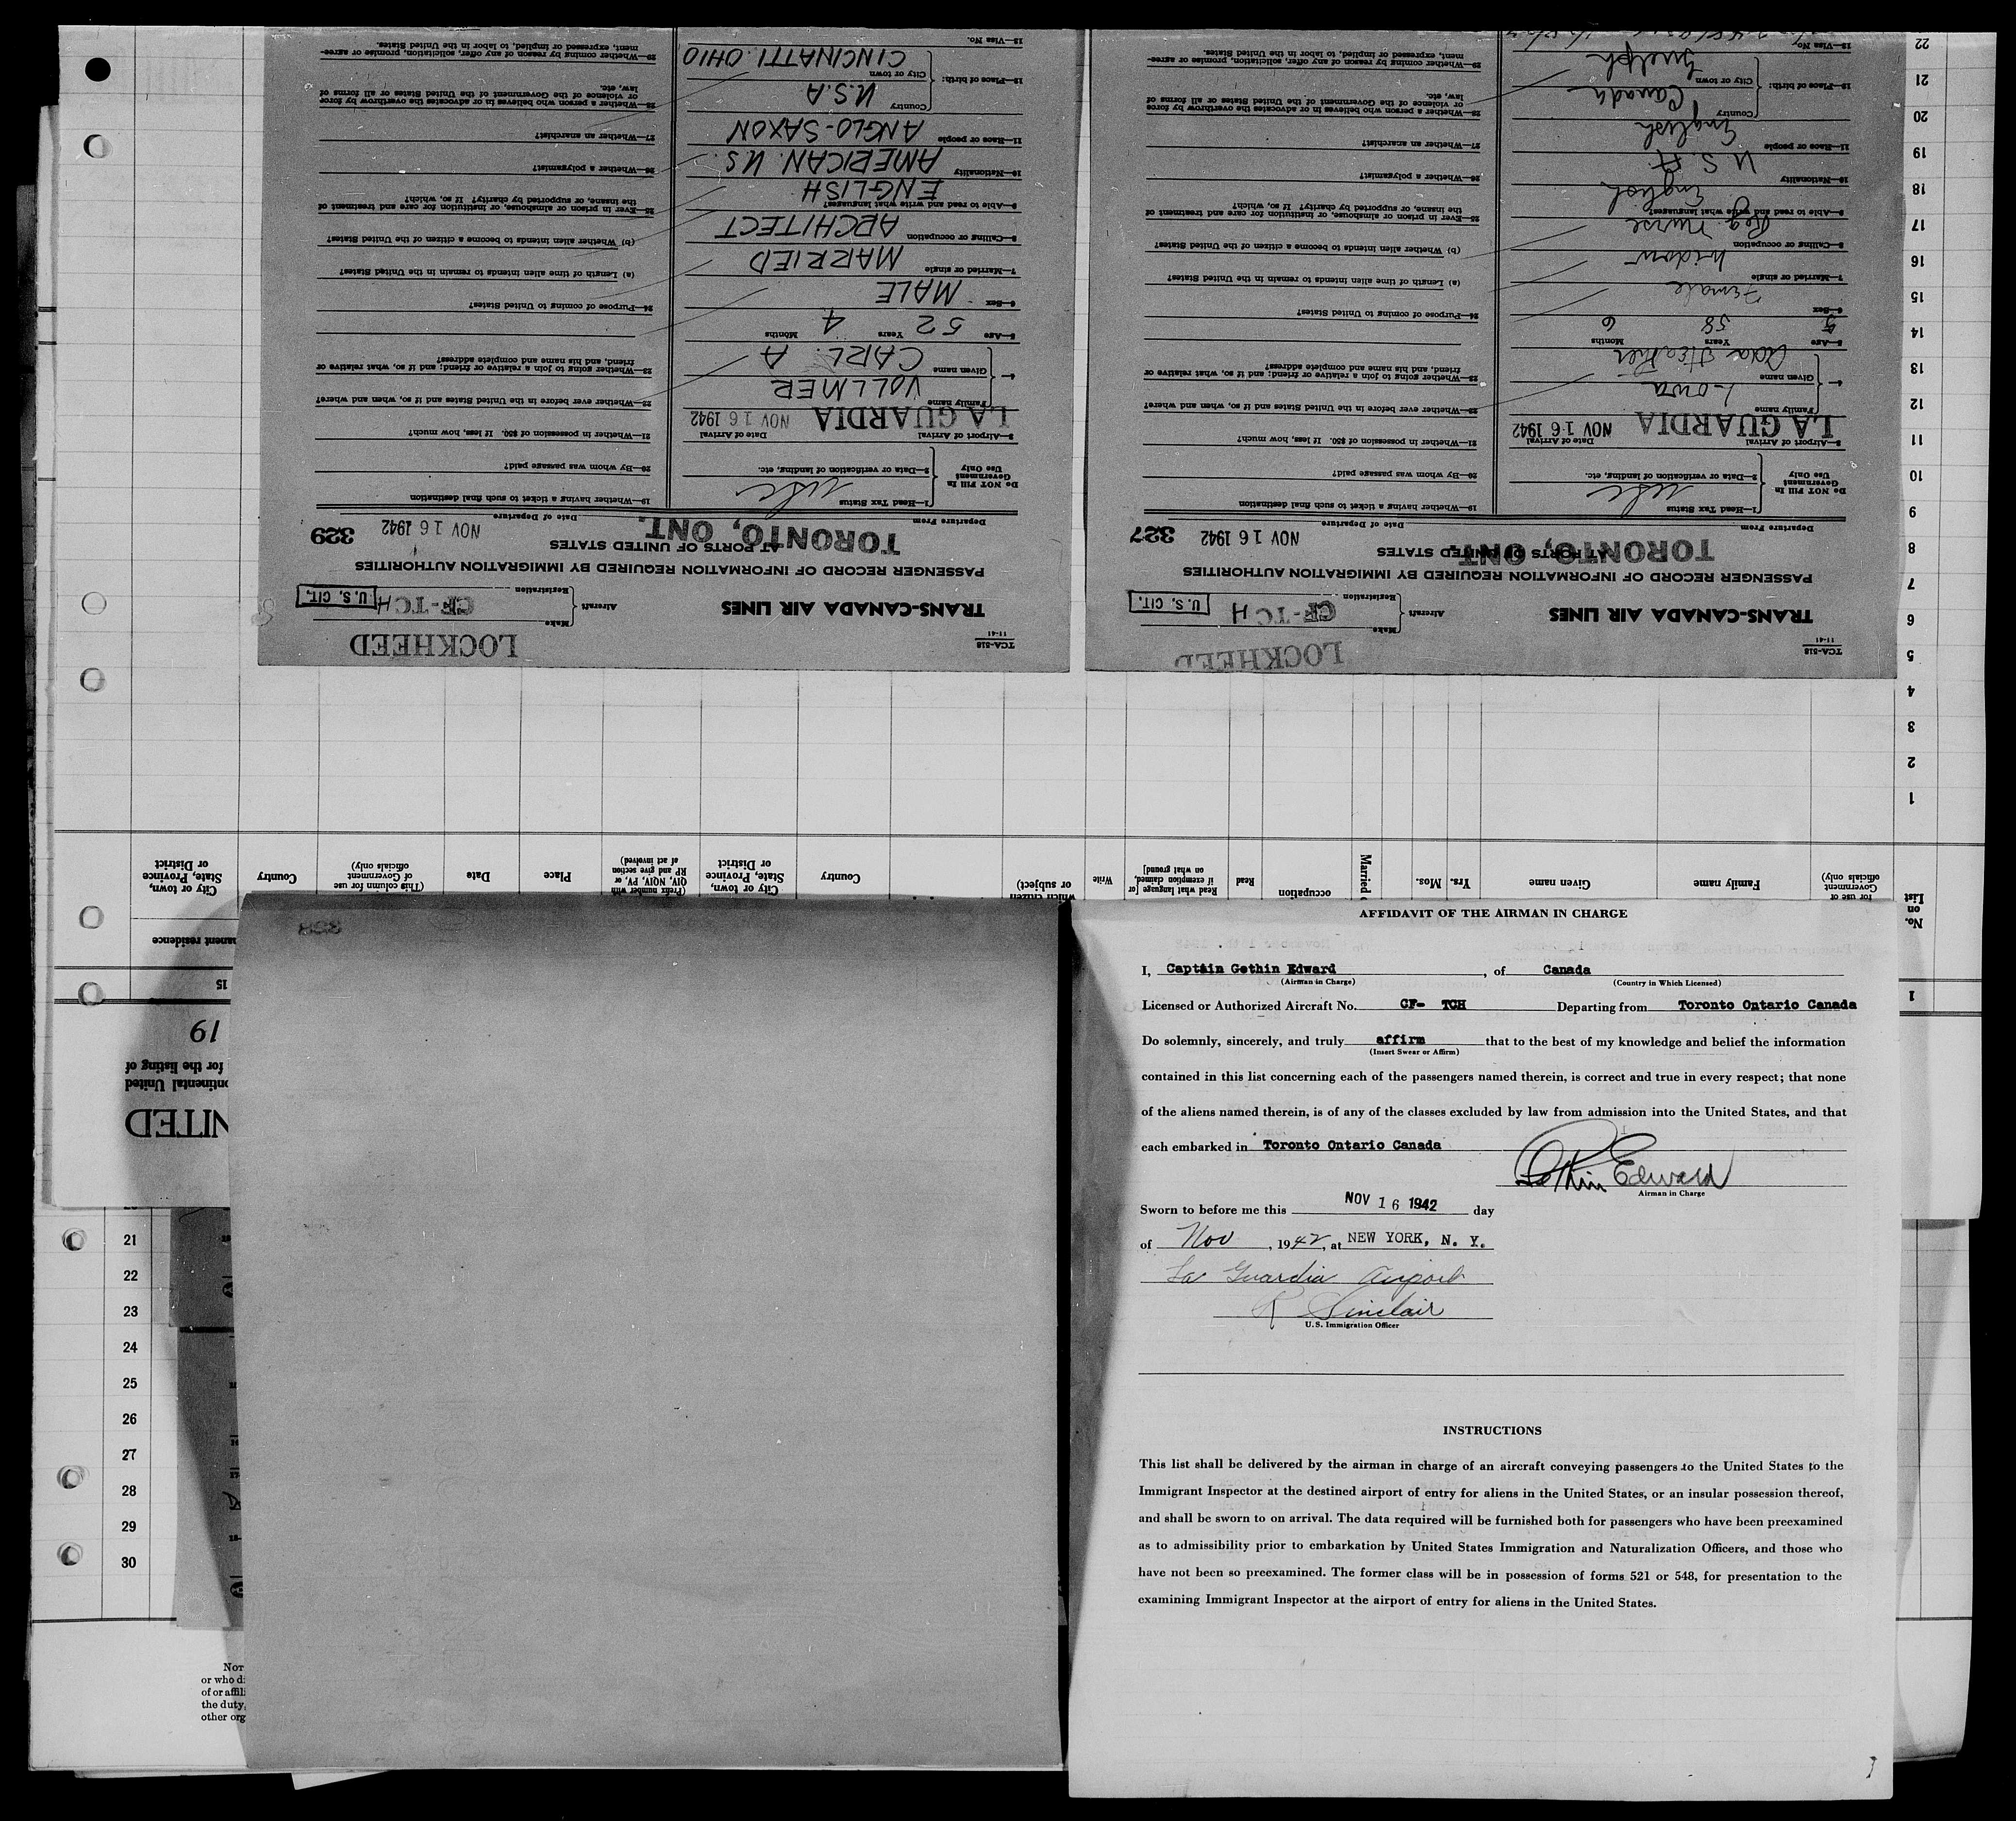 TCA-518
11-41
TRANS-CANADA AIR LINES
Aircraft
Make LOCKHEED
Registration CF-TCH
U. S. CIT.
PASSENGER RECORD OF INFORMATION REQUIRED BY IMMIGRATION AUTHORITIES
AT PORTS OF UNITED STATES
327
Departure From TORONTO, ONT.
Date of Departure NOV 16 1942
Do NOT Fill In
Government
Use Only
1—Head Tax Status
2—Data or verification of landing, etc.
3—Airport of Arrival LA GUARDIA
Date of Arrival NOV 16 1942
4—
Family name
Given name Ada
5—Age 58 Years 6 Months
6—Sex Female
7—Married or single Widow
8—Calling or occupation Reg. Nurse
9—Able to read and write what languages? English
10—Nationality U. S. A.
11—Race or people English
12—Place of birth:
Country Canada
City or town Guelph
13—Visa No.
19—Whether having a ticket to such final destination
20—By whom was passage paid?
21—Whether in possession of $50. If less, how much?
22—Whether ever before in the United States and if so, when and where?
23—Whether going to join a relative or friend; and if so, what relative or
friend, and his name and complete address?
24—Purpose of coming to United States?
(a) Length of time alien intends to remain in the United States?
(b) Whether alien intends to become a citizen of the United States?
25—Ever in prison or almshouse, or institution for care and treatment of
the insane, or supported by charity? If so, which?
26—Whether a polygamist?
27—Whether an anarchist?
28—Whether a person who believes in or advocates the overthrow by force
or violence of the Government of the United States or all forms of
law, etc.
29—Whether coming by reason of any offer, solicitation, promise or agree-
ment, expressed or implied, to labor in the United States.
TCA-518
11-41
TRANS-CANADA AIR LINES
Aircraft
Make LOCKHEED
Registration CF-TCH
U. S. CIT.
PASSENGER RECORD OF INFORMATION REQUIRED BY IMMIGRATION AUTHORITIES
AT PORTS OF UNITED STATES
329
Departure From TORONTO, ONT.
Date of Departure NOV 16 1942
Do NOT Fill In
Government
Use Only
1—Head Tax Status
2—Data or verification of landing, etc.
3—Airport of Arrival LA GUARDIA
Date of Arrival NOV 16 1942
4—
Family name VOLLMER
Given name CARL. A
5—Age 52 Years 4 Months
6—Sex MALE
7—Married or single MARRIED
8—Calling or occupation ARCHITECT
9—Able to read and write what languages? ENGLISH
10—Nationality AMERICAN. U.S.
11—Race or people ANGLO-SAXON
12—Place of birth:
Country U.S.A
City or town CINCINATTI. OHIO
13—Visa No.
19—Whether having a ticket to such final destination
20—By whom was passage paid?
21—Whether in possession of $50. If less, how much?
22—Whether ever before in the United States and if so, when and where?
23—Whether going to join a relative or friend; and if so, what relative or
friend, and his name and complete address?
24—Purpose of coming to United States?
(a) Length of time alien intends to remain in the United States?
(b) Whether alien intends to become a citizen of the United States?
25—Ever in prison or almshouse, or institution for care and treatment of
the insane, or supported by charity? If so, which?
26—Whether a polygamist?
27—Whether an anarchist?
28—Whether a person who believes in or advocates the overthrow by force
or violence of the Government of the United States or all forms of
law, etc.
29—Whether coming by reason of any offer, solicitation, promise or agree-
ment, expressed or implied, to labor in the United States.
No.
on
List
for use of
Government
officials only)
Family name
Given name
Yrs.
Mos.
Married
occupation
Read
Read what language [or
if exemption claimed,
on what ground]
Write
which citizen
or subject)
Country
City or town,
State, Province
or District
(Prefix number with
QIV, NQIV, PV, or
RP and give section
of act involved)
Place
Date
(This column for use
of Government
officials only)
Country
City or town,
State, Province
or District
manent residence
1
15
1
2
3
4
5
6
7
8
9
10
11
12
13
14
15
16
17
18
19
20
21
22
NITED
ontinental United
for the listing of
19
21
22
23
24
25
26
27
28
29
30
or who d
of or affili
the duty,
other org
AFFIDAVIT OF THE AIRMAN IN CHARGE
I, Captain Gethin Edward, of Canada
(Airman in Charge) (Country in Which Licensed)
Licensed or Authorized Aircraft No. CF- TCH Departing from Toronto Ontario Canada
Do solemnly, sincerely, and truly affirm that to the best of my knowledge and belief the information
(Insert Swear or Affirm)
contained in this list concerning each of the passengers named therein, is correct and true in every respect; that none
of the aliens named therein, is of any of the classes excluded by law from admission into the United States, and that
each embarked in Toronto Ontario Canada
Gethin Edward
Airman in Charge
Sworn to before me this NOV 16 1942 day
of Nov, 1942, at NEW YORK, N. Y.
La Guardia Airport
R Sinclair
U. S. Immigration Officer
INSTRUCTIONS
This list shall be delivered by the airman in charge of an aircraft conveying passengers to the United States to the
Immigrant Inspector at the destined airport of entry for aliens in the United States, or an insular possession thereof,
and shall be sworn to on arrival. The data required will be furnished both for passengers who have been preexamined
as to admissibility prior to embarkation by United States Immigration and Naturalization Officers, and those who
have not been so preexamined. The former class will be in possession of forms 521 or 548, for presentation to the
examining Immigrant Inspector at the airport of entry for aliens in the United States.